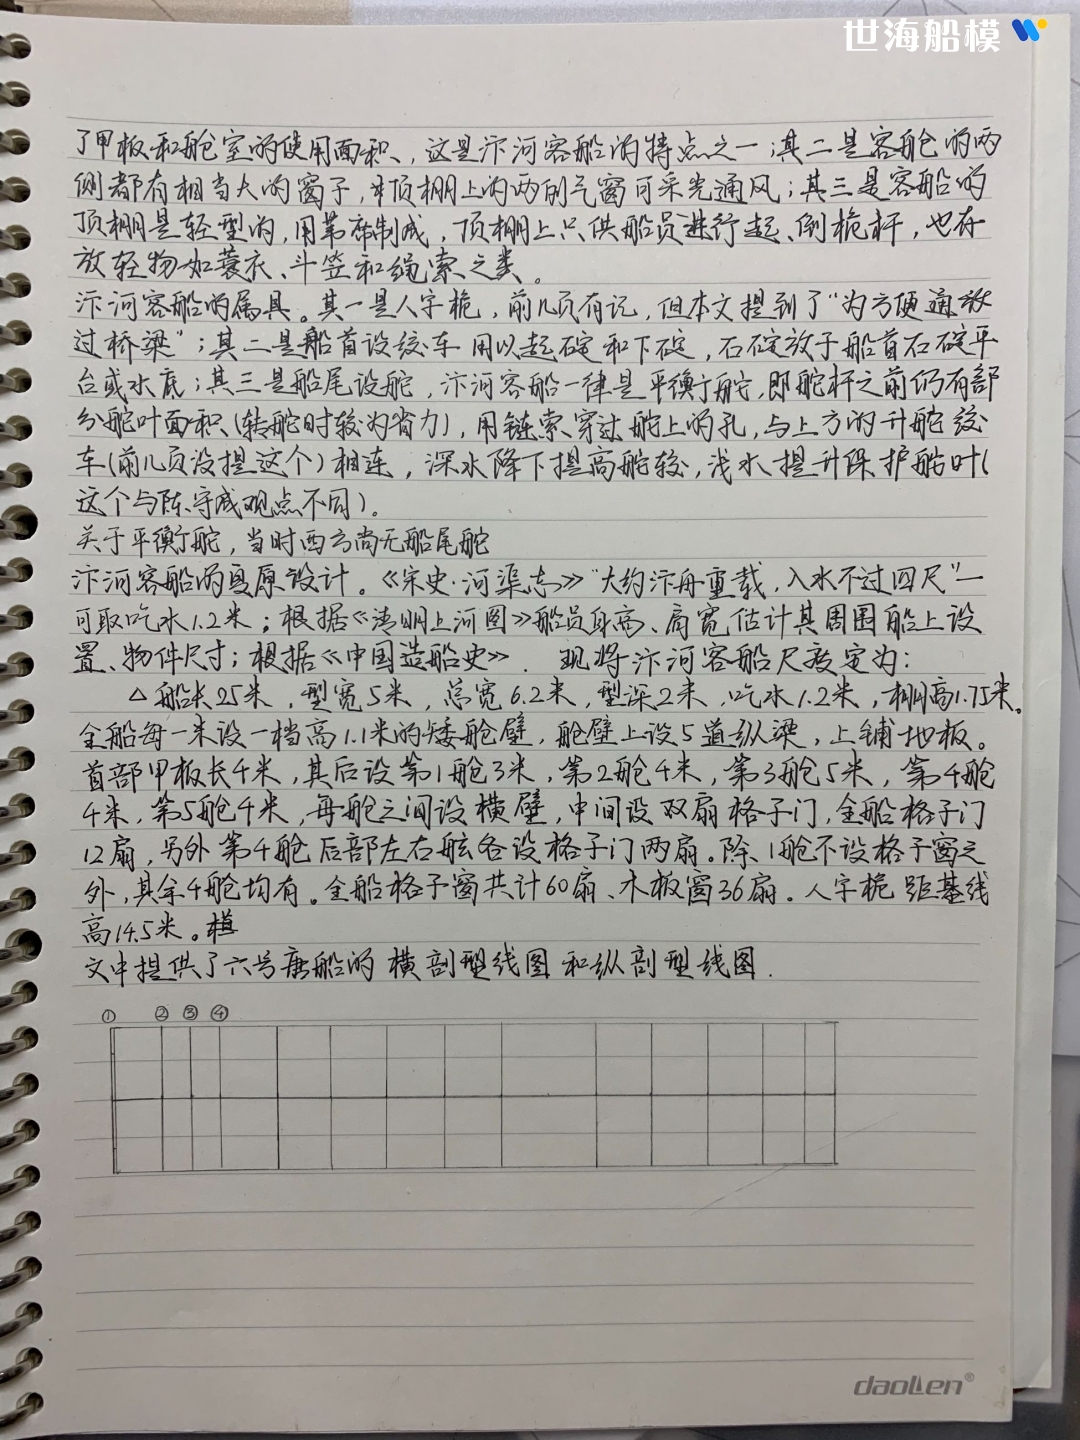 世海船模
了甲板和舱室的使用面积,这是汴河客船的特点之一;其二是客舱的两
侧都有相当大的窗子,顶棚上的两侧气窗可采光通风;其三是客船的
顶棚是轻型的,用苇席制成,顶棚上只供船员进行起、倒桅杆,也存
放轻物如蓑衣、斗笠和绳索之类。
汴河客船的属具。其一是人字桅,前几页有记,但本文提到了“为方便通放
过桥梁”;其二是船首设绞车用以起碇和下碇,石碇放于船首石碇平
台或水底;其三是船尾设舵,汴河客船一律是平衡舵,即舵杆之前仍有部
分舵叶面积(转舵时较为省力),用链索穿过舵上的孔,与上方的升舵绞
车(前几页没提这个)相连,深水降下提高舵较,浅水提升保护船叶(
这个与陈守成观点不同)。
关于平衡舵,当时西方尚无船尾舵
汴河客船的复原设计。《宋史·河渠志》“大约汴舟重载,入水不过四尺”—
可取吃水1.2米;根据《清明上河图》船员身高、肩宽估计其周围船上设
置、物件尺寸;根据《中国造船史》. 现将汴河客船尺度定为:
△船长25米,型宽5米,总宽6.2米,型深2米,吃水1.2米,棚高1.75米。
全船每一米设一档高1.1米的矮舱壁,舱壁上设5道纵梁,上铺地板。
首部甲板长4米,其后设第1舱3米,第2舱4米,第3舱5米,第4舱
4米,第5舱4米,每舱之间设横壁,中间设双扇格子门,全船格子门
12扇,另外第4舱后部左右舷各设格子门两扇。除1舱不设格子窗之
外,其余4舱均有。全船格子窗共计60扇、木板窗36扇。人字桅距基线
高14.5米。
文中提供了六号唐船的横剖型线图和纵剖型线图.
① ② ③ ④
daolen®